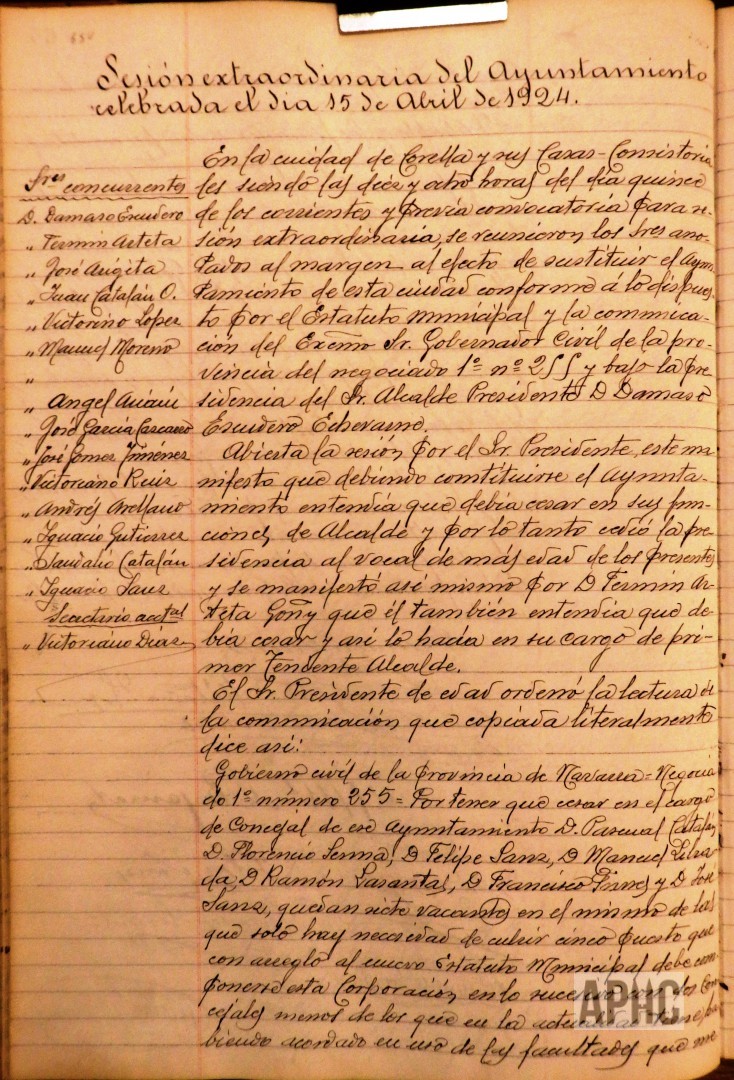 Sesión extraordinaria del Ayuntamiento
celebrada el dia 15 de Abril de 1924.
Sres concurrentes
D. Damaso Escudero
" Fermin Arteta
" José Arigita
" Juan Catalán O.
" Victorino Lopez
" Manuel Moreno
"
" Angel
" José Garcia
" José Gomez Jiménez
" Victoriano Ruiz
" Andrés Arellano
" Ignacio Gutierrez
" Sandalio Catalán
" Ignacio Sanz
Secretario acctal
" Victoriano Diaz
En la cuidad de Corella y sus Casas-Consistoria
les siendo las diez y ocho horas del día quince
de los corrientes y previa convocatoria para se-
sión extraordinaria, se reunieron los Sres ano-
tados al margen al efecto de sustituir el Ayun-
tamiento de esta ciudad conforme á lo dispues-
to por el Estatuto municipal y la comunica-
ción del Exemo Sr. Gobernador Civil de la pro-
vincia del negociado 1º nº 255 y bajo la pre-
sidencia del Sr. Alcalde Presidente D Damaso
Escudero Echevarne.
Abierta la sesión por el Sr. Presidente, este ma-
nifesto que debiendo constituirse el Ayunta-
miento entendia que debia cesar en sus fun-
ciones, de Alcalde y por lo tanto cedió la pre-
sidencia al vocal de más edad de los presentes
y se manifestó asi mismo por D Fermin Ar-
teta Goñy que él también entendia que de-
bia cesar y asi lo hacia en su cargo de pri-
mer Teniente Alcalde.
El Sr. Presidente de edad ordenó la lectura de
la comunicación que copiada literalmente
dice asi:
Gobierno civil de la provincia de Navarra = Negocia
do 1º número 255 = Por tener que cesar en el cargo
de Concejal de ese Ayuntamiento D. Pascual Catalán
D. Florencio Senna, D Felipe Sanz, D Manuel
da, D Ramón Lasanta, D Francisco y D José
Sanz, quedan siete vacantes en el mismo de las
que solo hay necesidad de cubrir cinco puesto que
con arreglo al nuevo Estatuto Municipal debe com
ponerse esta Corporación en lo sucesivo de dos Con
cejales menos de los que en la actualidad tiene y ha
biendo acordado en uso de las facultades que me
APHC